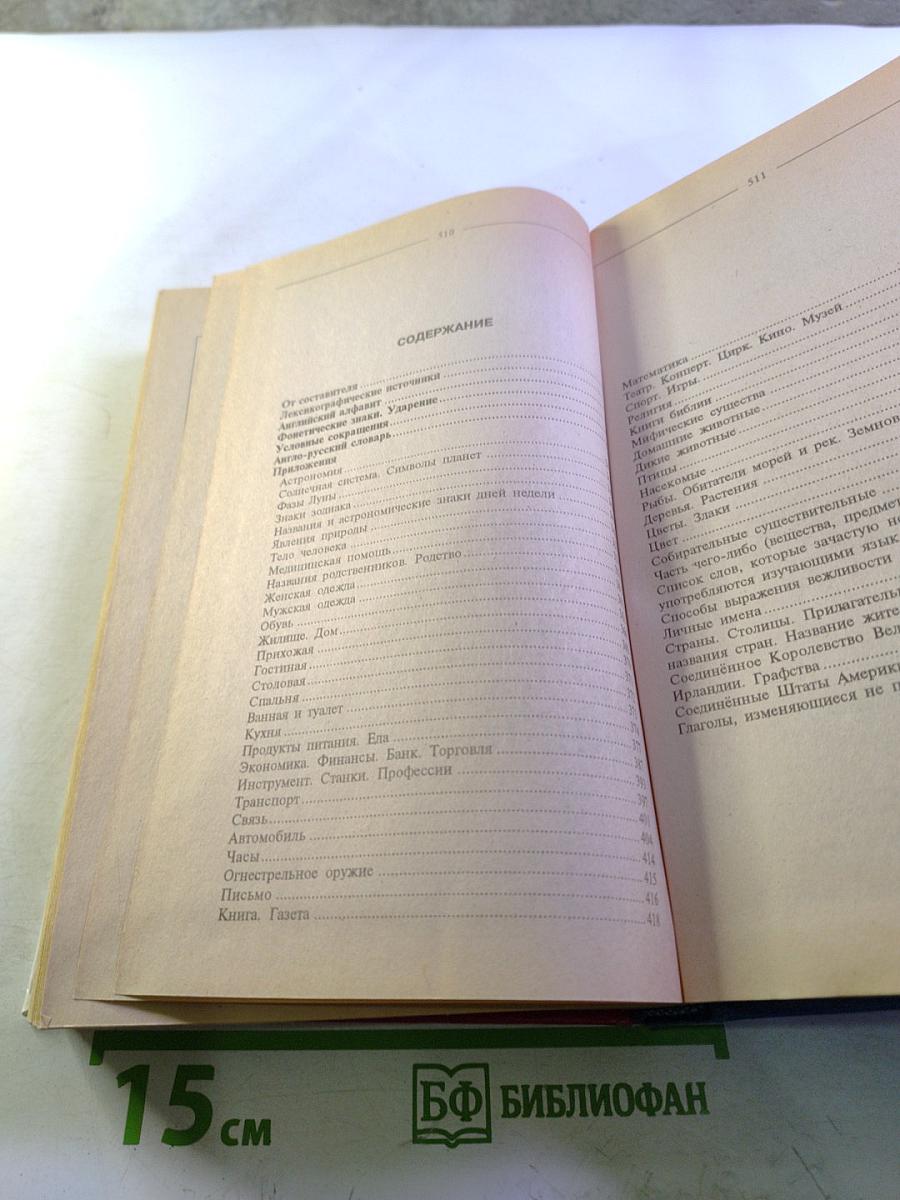 510
СОДЕРЖАНИЕ
От составителя
Лексикографические источники
Английский алфавит
Фонетические знаки. Ударение
Условные сокращения
Англо-русский словарь
Приложения
Астрономия
Солнечная система. Символы планет
Фазы Луны
Знаки зодиака
Названия и астрономические знаки дней недели
Явления природы
Тело человека
Медицинская помощь
Названия родственников. Родство
Женская одежда
Мужская одежда
Обувь
Жилище. Дом
Прихожая
Гостиная
Столовая
Спальня
Ванная и туалет
Кухня
Продукты питания. Еда 377
Экономика. Финансы. Банк. Торговля 387
Инструмент. Станки. Профессии 393
Транспорт 397
Связь 401
Автомобиль 404
Часы 414
Огнестрельное оружие 415
Письмо 416
Книга. Газета 418
511
Математика
Театр. Концерт. Цирк. Кино. Музей
Спорт. Игры.
Религия
Книги библии
Мифические существа
Домашние животные
Дикие животные
Птицы
Насекомые
Рыбы. Обитатели морей и рек. Земнов
Деревья. Растения
Цветы. Злаки
Цвет
Собирательные существительные
Часть чего-либо (вещества, предмет
Список слов, которые зачастую не
употребляются изучающими язык
Способы выражения вежливости
Личные имена
Страны. Столицы. Прилагатель
названия стран. Название жите
Соединённое Королевство Вел
Ирландии. Графства
Соединённые Штаты Америк
Глаголы, изменяющиеся не п
15 см
БФ БИБЛИОФАН